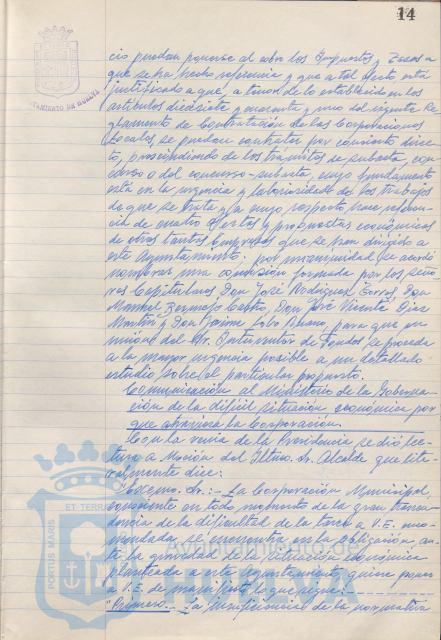 14
cio puedan ponerse al cobro los Impuestos y Tasas a
que se ha hecho referencia y que a tal efecto está
justificado a que, a tenor de lo establecido en los
artículos diecisiete y cuarenta y uno del vigente Re
glamento de Contratación de las Corporaciones
Locales se puedan contratar por concierto direc-
to, prescindiendo de los trámites de subasta, con-
curso o del concurso-subasta, cuyo fundamento
está en la urgencia y laboriosidad de los trabajos
de que se trata y a cuyo respecto hace referen-
cia de cuatro ofertas y propuestas económicas
de otras tantas Empresas que se han dirigido a
este Ayuntamiento; por unanimidad se acordó
nombrar una comisión formada por los seño-
res Capitulares Don José Rodríguez Don
Manuel Bermejo Castro, Don José Vicente Díaz
Martín y Don Jaime Lobo para que en
unión del Sr. Interventor de Fondos se proceda
a la mayor urgencia posible a un detallado
estudio sobre el particular propuesto.
Comunicación al Ministerio de la Goberna-
ción de la difícil situación económica por
que atraviesa la Corporación.
Con la venia de la Presidencia se dió lec-
tura a Moción del Iltmo. Sr. Alcalde que lite-
ralmente dice:
"Excmo. Sr.:- La Corporación Municipal,
consciente en todo momento de la gran trascen-
dencia de la dificultad de la tarea a V.E. enco-
mendada, se encuentra en la obligación, an-
te la gravedad de la situación económica
planteada a este Ayuntamiento, quiere poner
a V.E. de manifiesto lo que sigue:
"Primero.- La insuficiencia de la normativa
AYUNTAMIENTO DE HUELVA
PORTUS MARIS
ET TERRAE
Ayuntamiento de
HUELVA